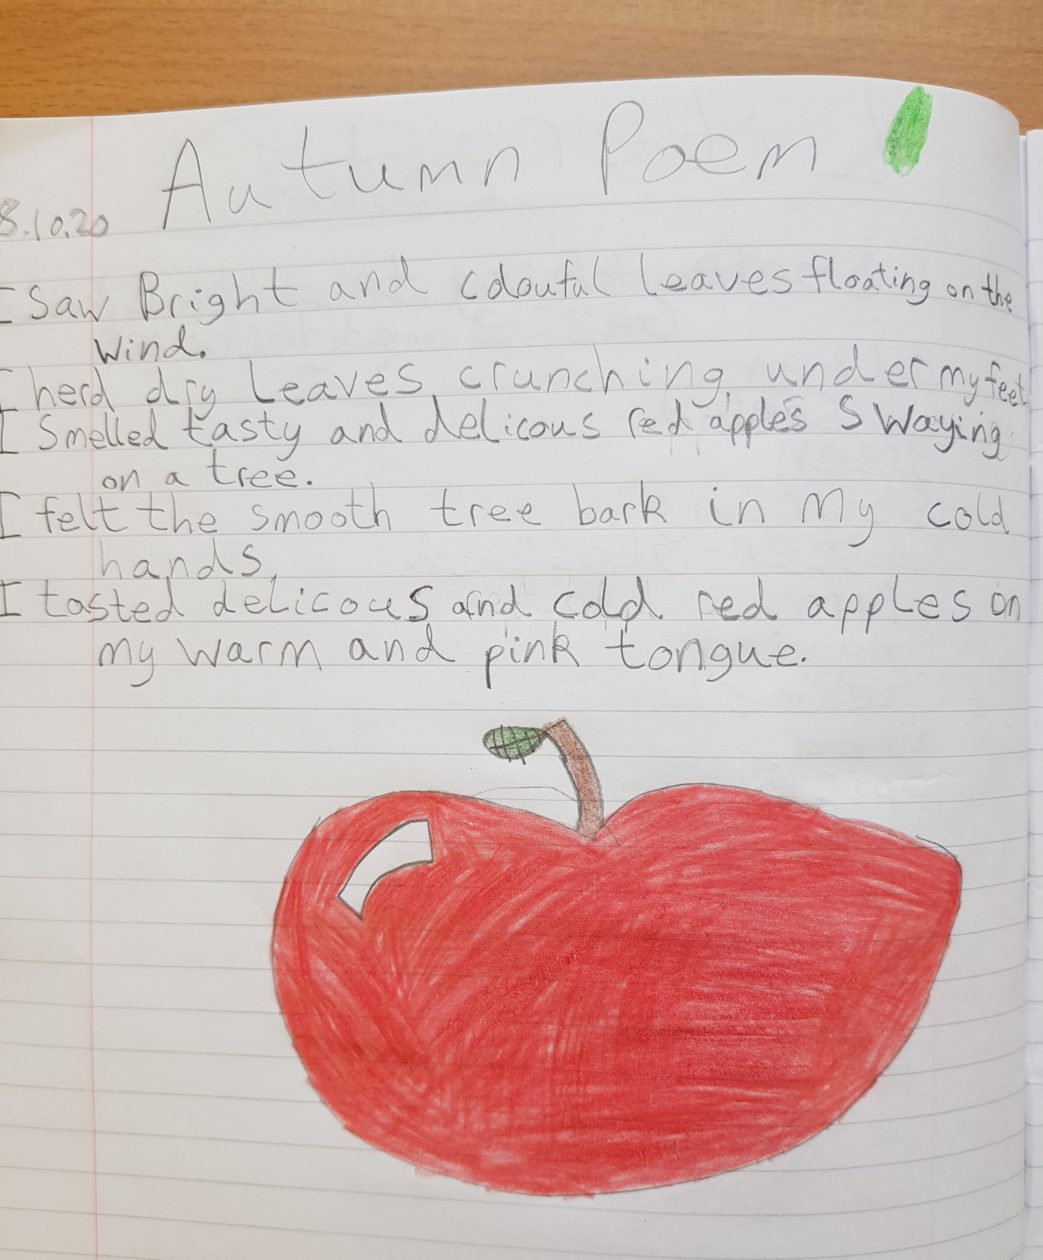 Autumn Poem
8.10.20
I saw Bright and colouful leaves floating on the
wind.
I herd dry leaves crunching under my feet
I smelled tasty and delicous red apples swaying
on a tree.
I felt the smooth tree bark in my cold
hands.
I tasted delicous and cold red apples on
my warm and pink tongue.